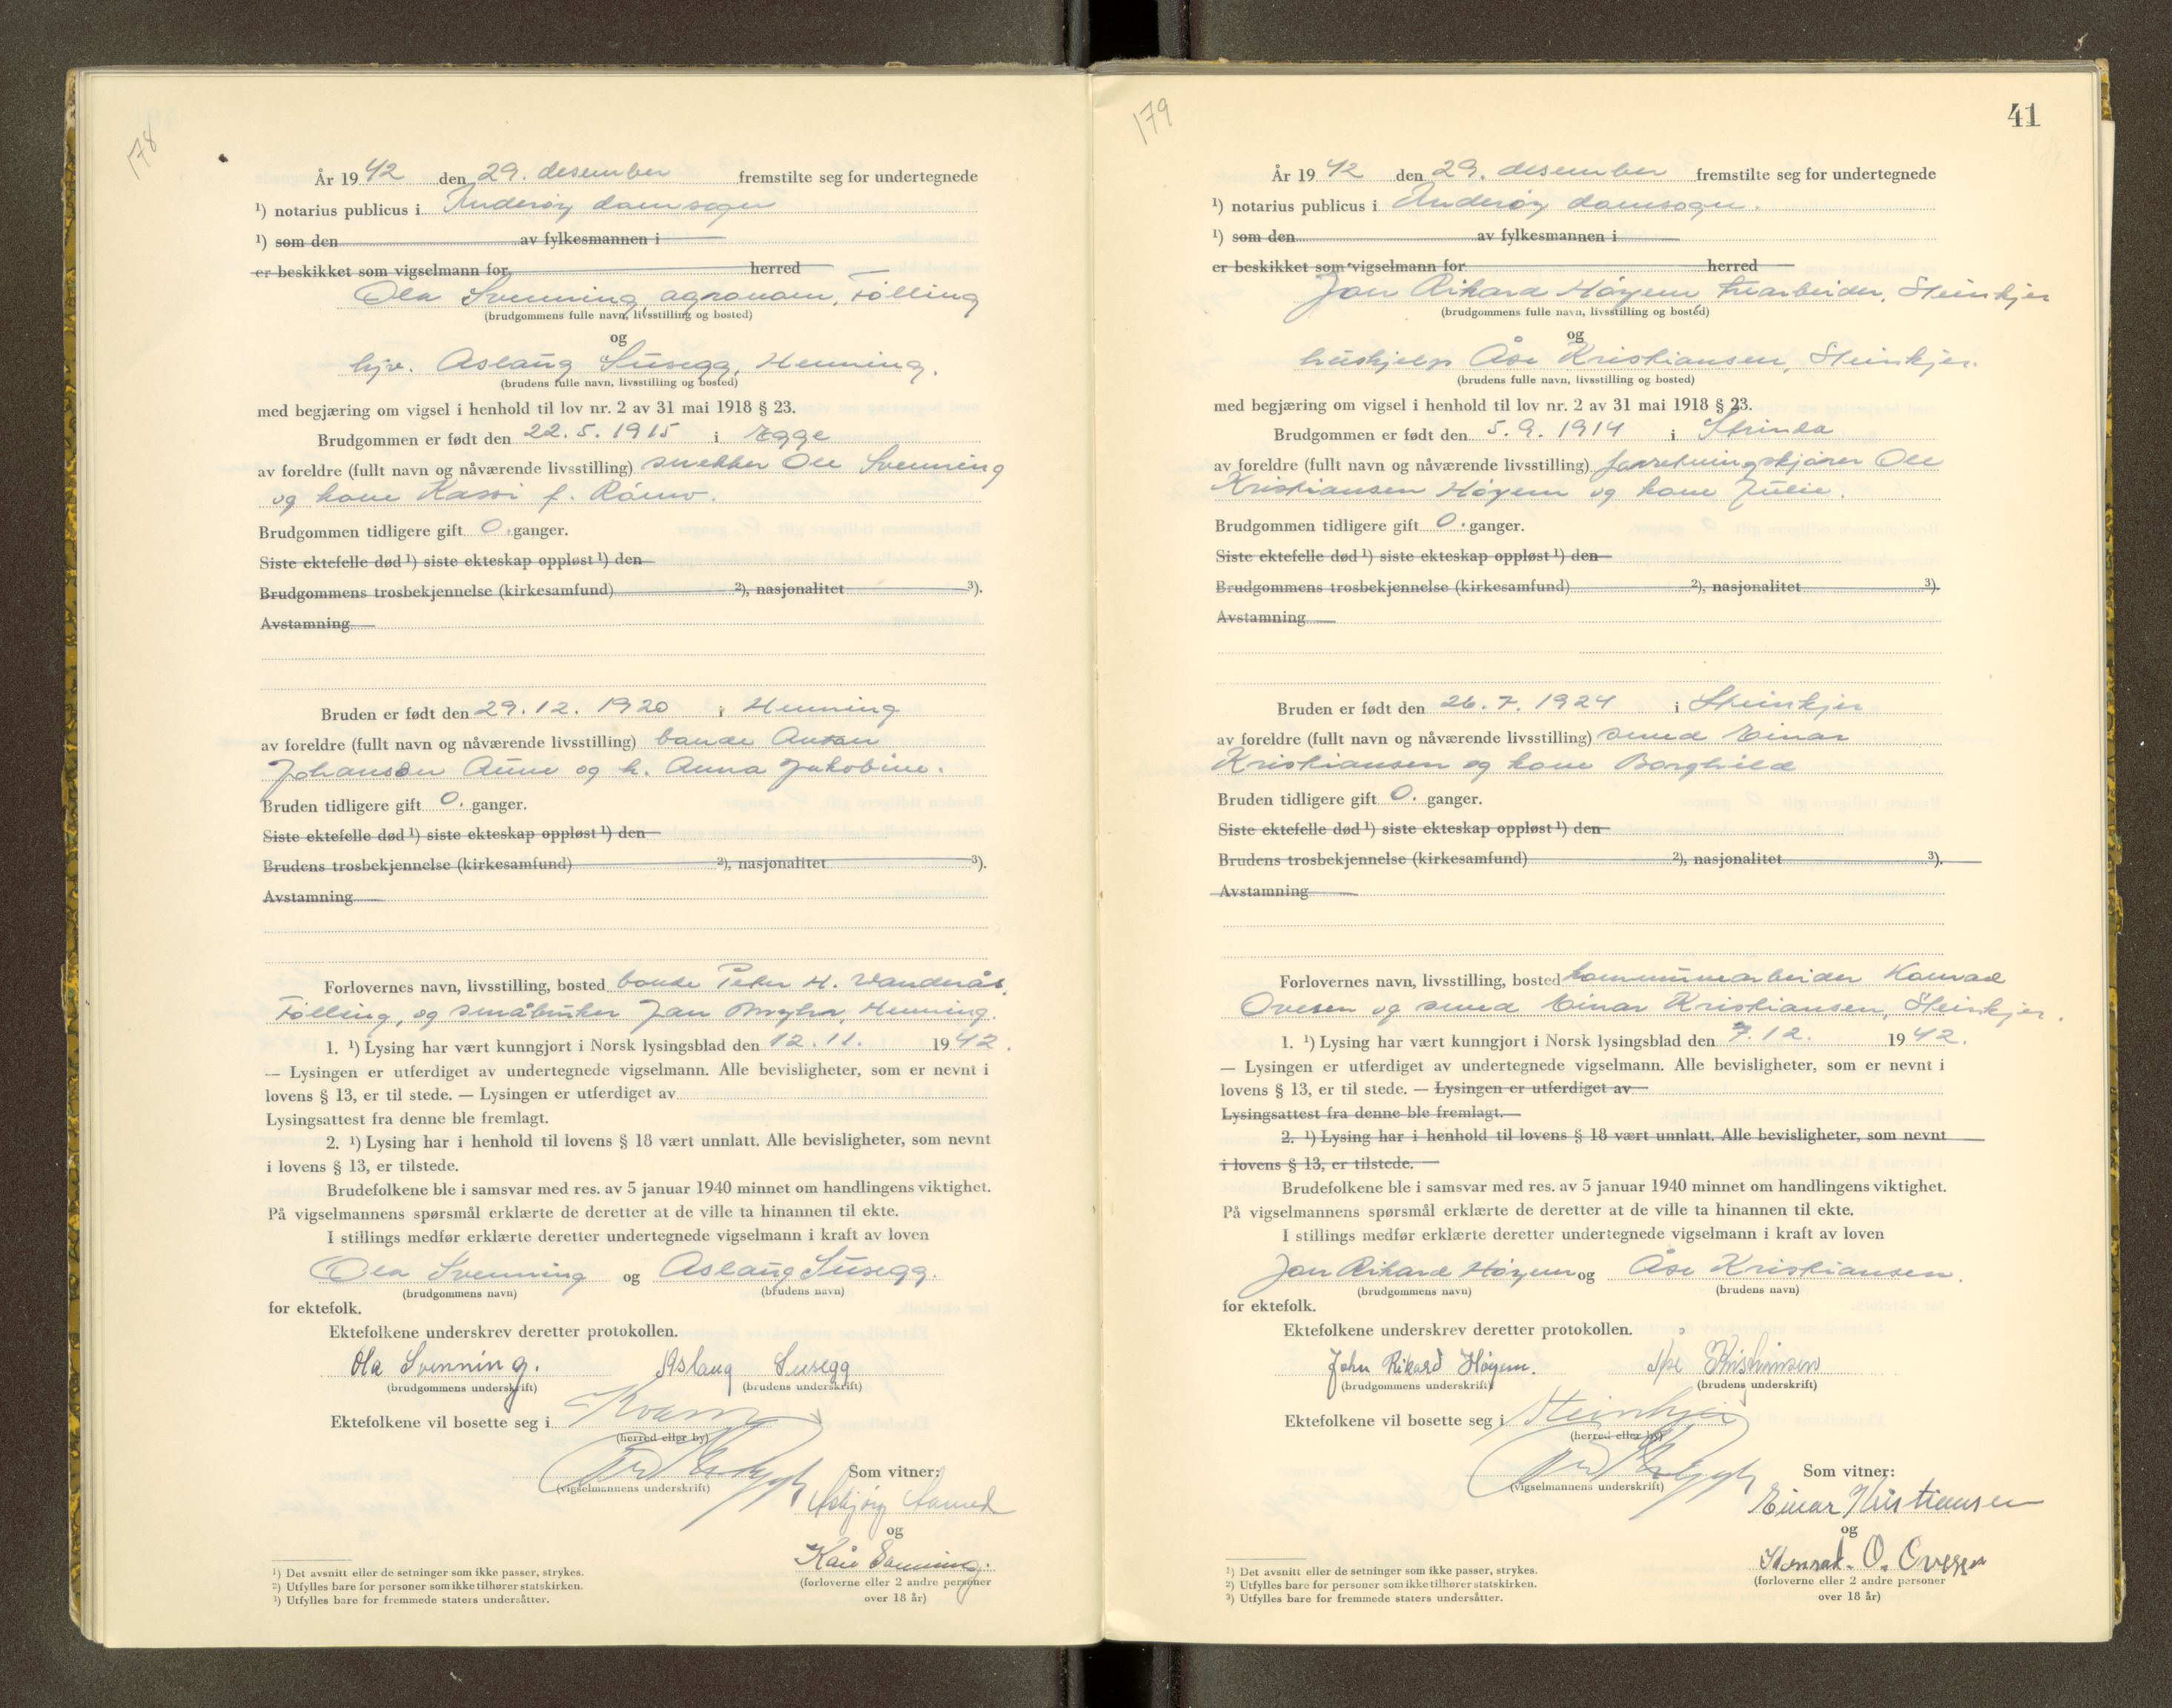 178
År 1942 den 29. desember fremstilte seg for undertegnede
¹) notarius publicus i Inderøy domsogn
¹) som den av fylkesmannen i
er beskikket som vigselmann for herred
Ola Svenning, agronom, Følling
(brudgommens fulle navn, livsstilling og bosted)
og
hjv. Aslaug Susegg, Henning.
(brudens fulle navn, livsstilling og bosted)
med begjæring om vigsel i henhold til lov nr. 2 av 31 mai 1918 § 23.
Brudgommen er født den 22.5.1915 i Egge
av foreldre (fullt navn og nåværende livsstilling) snekker Ole Svenning
og kone Kassi f.
Brudgommen tidligere gift 0. ganger.
Siste ektefelle død ¹) siste ekteskap oppløst ¹) den
Brudgommens trosbekjennelse (kirkesamfund) ²), nasjonalitet ³).
Avstamning
Bruden er født den 29.12.1920 i Henning
av foreldre (fullt navn og nåværende livsstilling) bonde Anton
Johansen Aune og h. Anna Jakobine.
Bruden tidligere gift 0. ganger.
Siste ektefelle død ¹) siste ekteskap oppløst ¹) den
Brudens trosbekjennelse (kirkesamfund) ²), nasjonalitet ³).
Avstamning
Forlovernes navn, livsstilling, bosted bonde Peter H. Vandnås,
Følling, og småbruker Jan Henning.
1. ¹) Lysing har vært kunngjort i Norsk lysingsblad den 12.11. 1942.
— Lysingen er utferdiget av undertegnede vigselmann. Alle bevisligheter, som er nevnt i
lovens § 13, er til stede. — Lysingen er utferdiget av
Lysingsattest fra denne ble fremlagt.
2. ¹) Lysing har i henhold til lovens § 18 vært unnlatt. Alle bevisligheter, som nevnt
i lovens § 13, er tilstede.
Brudefolkene ble i samsvar med res. av 5 januar 1940 minnet om handlingens viktighet.
På vigselmannens spørsmål erklærte de deretter at de ville ta hinannen til ekte.
I stillings medfør erklærte deretter undertegnede vigselmann i kraft av loven
Ola Svenning og Aslaug Susegg.
(brudgommens navn) (brudens navn)
for ektefolk.
Ektefolkene underskrev deretter protokollen.
Ola Svenning. Aslaug Susegg
(brudgommens underskrift) (brudens underskrift)
Ektefolkene vil bosette seg i Kvam
(herred eller by)
(vigselmannens underskrift) Som vitner:
Asbjørg
og
Kåre Svenning.
(forloverne eller 2 andre personer
over 18 år)
¹) Det avsnitt eller de setninger som ikke passer, strykes.
²) Utfylles bare for personer som ikke tilhører statskirken.
³) Utfylles bare for fremmede staters undersåtter.
179
41
År 1942 den 29. desember fremstilte seg for undertegnede
¹) notarius publicus i Inderøy domsogn.
¹) som den av fylkesmannen i
er beskikket som vigselmann for herred
Jon Rikard Høyem, trearbeider, Steinkjer
(brudgommens fulle navn, livsstilling og bosted)
og
hushjelp Åse Kristiansen, Steinkjer.
(brudens fulle navn, livsstilling og bosted)
med begjæring om vigsel i henhold til lov nr. 2 av 31 mai 1918 § 23.
Brudgommen er født den 5.9.1914 i Strinda
av foreldre (fullt navn og nåværende livsstilling) forretningskjører Ole
Kristiansen Høyem og kone Julie.
Brudgommen tidligere gift 0. ganger.
Siste ektefelle død ¹) siste ekteskap oppløst ¹) den
Brudgommens trosbekjennelse (kirkesamfund) ²), nasjonalitet ³).
Avstamning
Bruden er født den 26.7.1924 i Steinkjer
av foreldre (fullt navn og nåværende livsstilling) smed Einar
Kristiansen og kone Borghild
Bruden tidligere gift 0. ganger.
Siste ektefelle død ¹) siste ekteskap oppløst ¹) den
Brudens trosbekjennelse (kirkesamfund) ²), nasjonalitet ³).
Avstamning
Forlovernes navn, livsstilling, bosted kommunearbeider Konrad
Ovesen og smed Einar Kristiansen, Steinkjer.
1. ¹) Lysing har vært kunngjort i Norsk lysingsblad den 7.12. 1942.
— Lysingen er utferdiget av undertegnede vigselmann. Alle bevisligheter, som er nevnt i
lovens § 13, er til stede. — Lysingen er utferdiget av
Lysingsattest fra denne ble fremlagt.
2. ¹) Lysing har i henhold til lovens § 18 vært unnlatt. Alle bevisligheter, som nevnt
i lovens § 13, er tilstede.
Brudefolkene ble i samsvar med res. av 5 januar 1940 minnet om handlingens viktighet.
På vigselmannens spørsmål erklærte de deretter at de ville ta hinannen til ekte.
I stillings medfør erklærte deretter undertegnede vigselmann i kraft av loven
Jon Rikard Høyem og Åse Kristiansen.
(brudgommens navn) (brudens navn)
for ektefolk.
Ektefolkene underskrev deretter protokollen.
John Rikard Høyem. Åse Kristiansen
(brudgommens underskrift) (brudens underskrift)
Ektefolkene vil bosette seg i Steinkjer
(herred eller by)
(vigselmannens underskrift) Som vitner:
Einar Kristiansen
og
Konrad O. Ovesen
(forloverne eller 2 andre personer
over 18 år)
¹) Det avsnitt eller de setninger som ikke passer, strykes.
²) Utfylles bare for personer som ikke tilhører statskirken.
³) Utfylles bare for fremmede staters undersåtter.